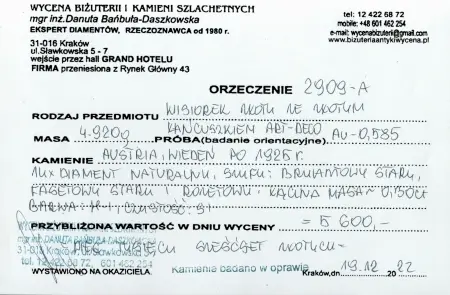 WYCENA BIŻUTERII I KAMIENI SZLACHETNYCH
mgr inż. Danuta Bańbuła-Daszkowska
EKSPERT DIAMENTÓW, RZECZOZNAWCA od 1980 r.
tel: 12 422 68 72
mobile: +48 601 462 254
e-mail: wycenabizuterii@gmail.com
www.bizuteriaantykiwycena.pl
31-016 Kraków
ul.Sławkowska 5 - 7
wejście przez hall GRAND HOTELU
FIRMA przeniesiona z Rynek Główny 43
ORZECZENIE 2909-A
RODZAJ PRZEDMIOTU WISIOREK ZŁOTY ZE ZŁOTYM
ŁAŃCUSZKIEM ART-DECO
MASA 4.920g PRÓBA(badanie orientacyjne) AU-0,585
KAMIENIE AUSTRIA, WIEDEŃ PO 1925 r.
DIAMENT NATURALNY, SZLIF: BRYLANTOWY STARY,
FASETOWY STARY I ROZETOWY. ŁĄCZNA MASA
BARWA: H-I, CZYSTOŚĆ:
PRZYBLIŻONA WARTOŚĆ W DNIU WYCENY = 5 600,-
mgr inż. DANUTA BAŃBUŁA-DASZKOWSKA
PIĘĆ TYSIĘCY SZEŚĆSET ZŁOTYCH
tel. 12 422 68 72, 601 462 254
WYSTAWIONO NA OKAZICIELA. Kamienie badano w oprawie Kraków, 19.12 20 22